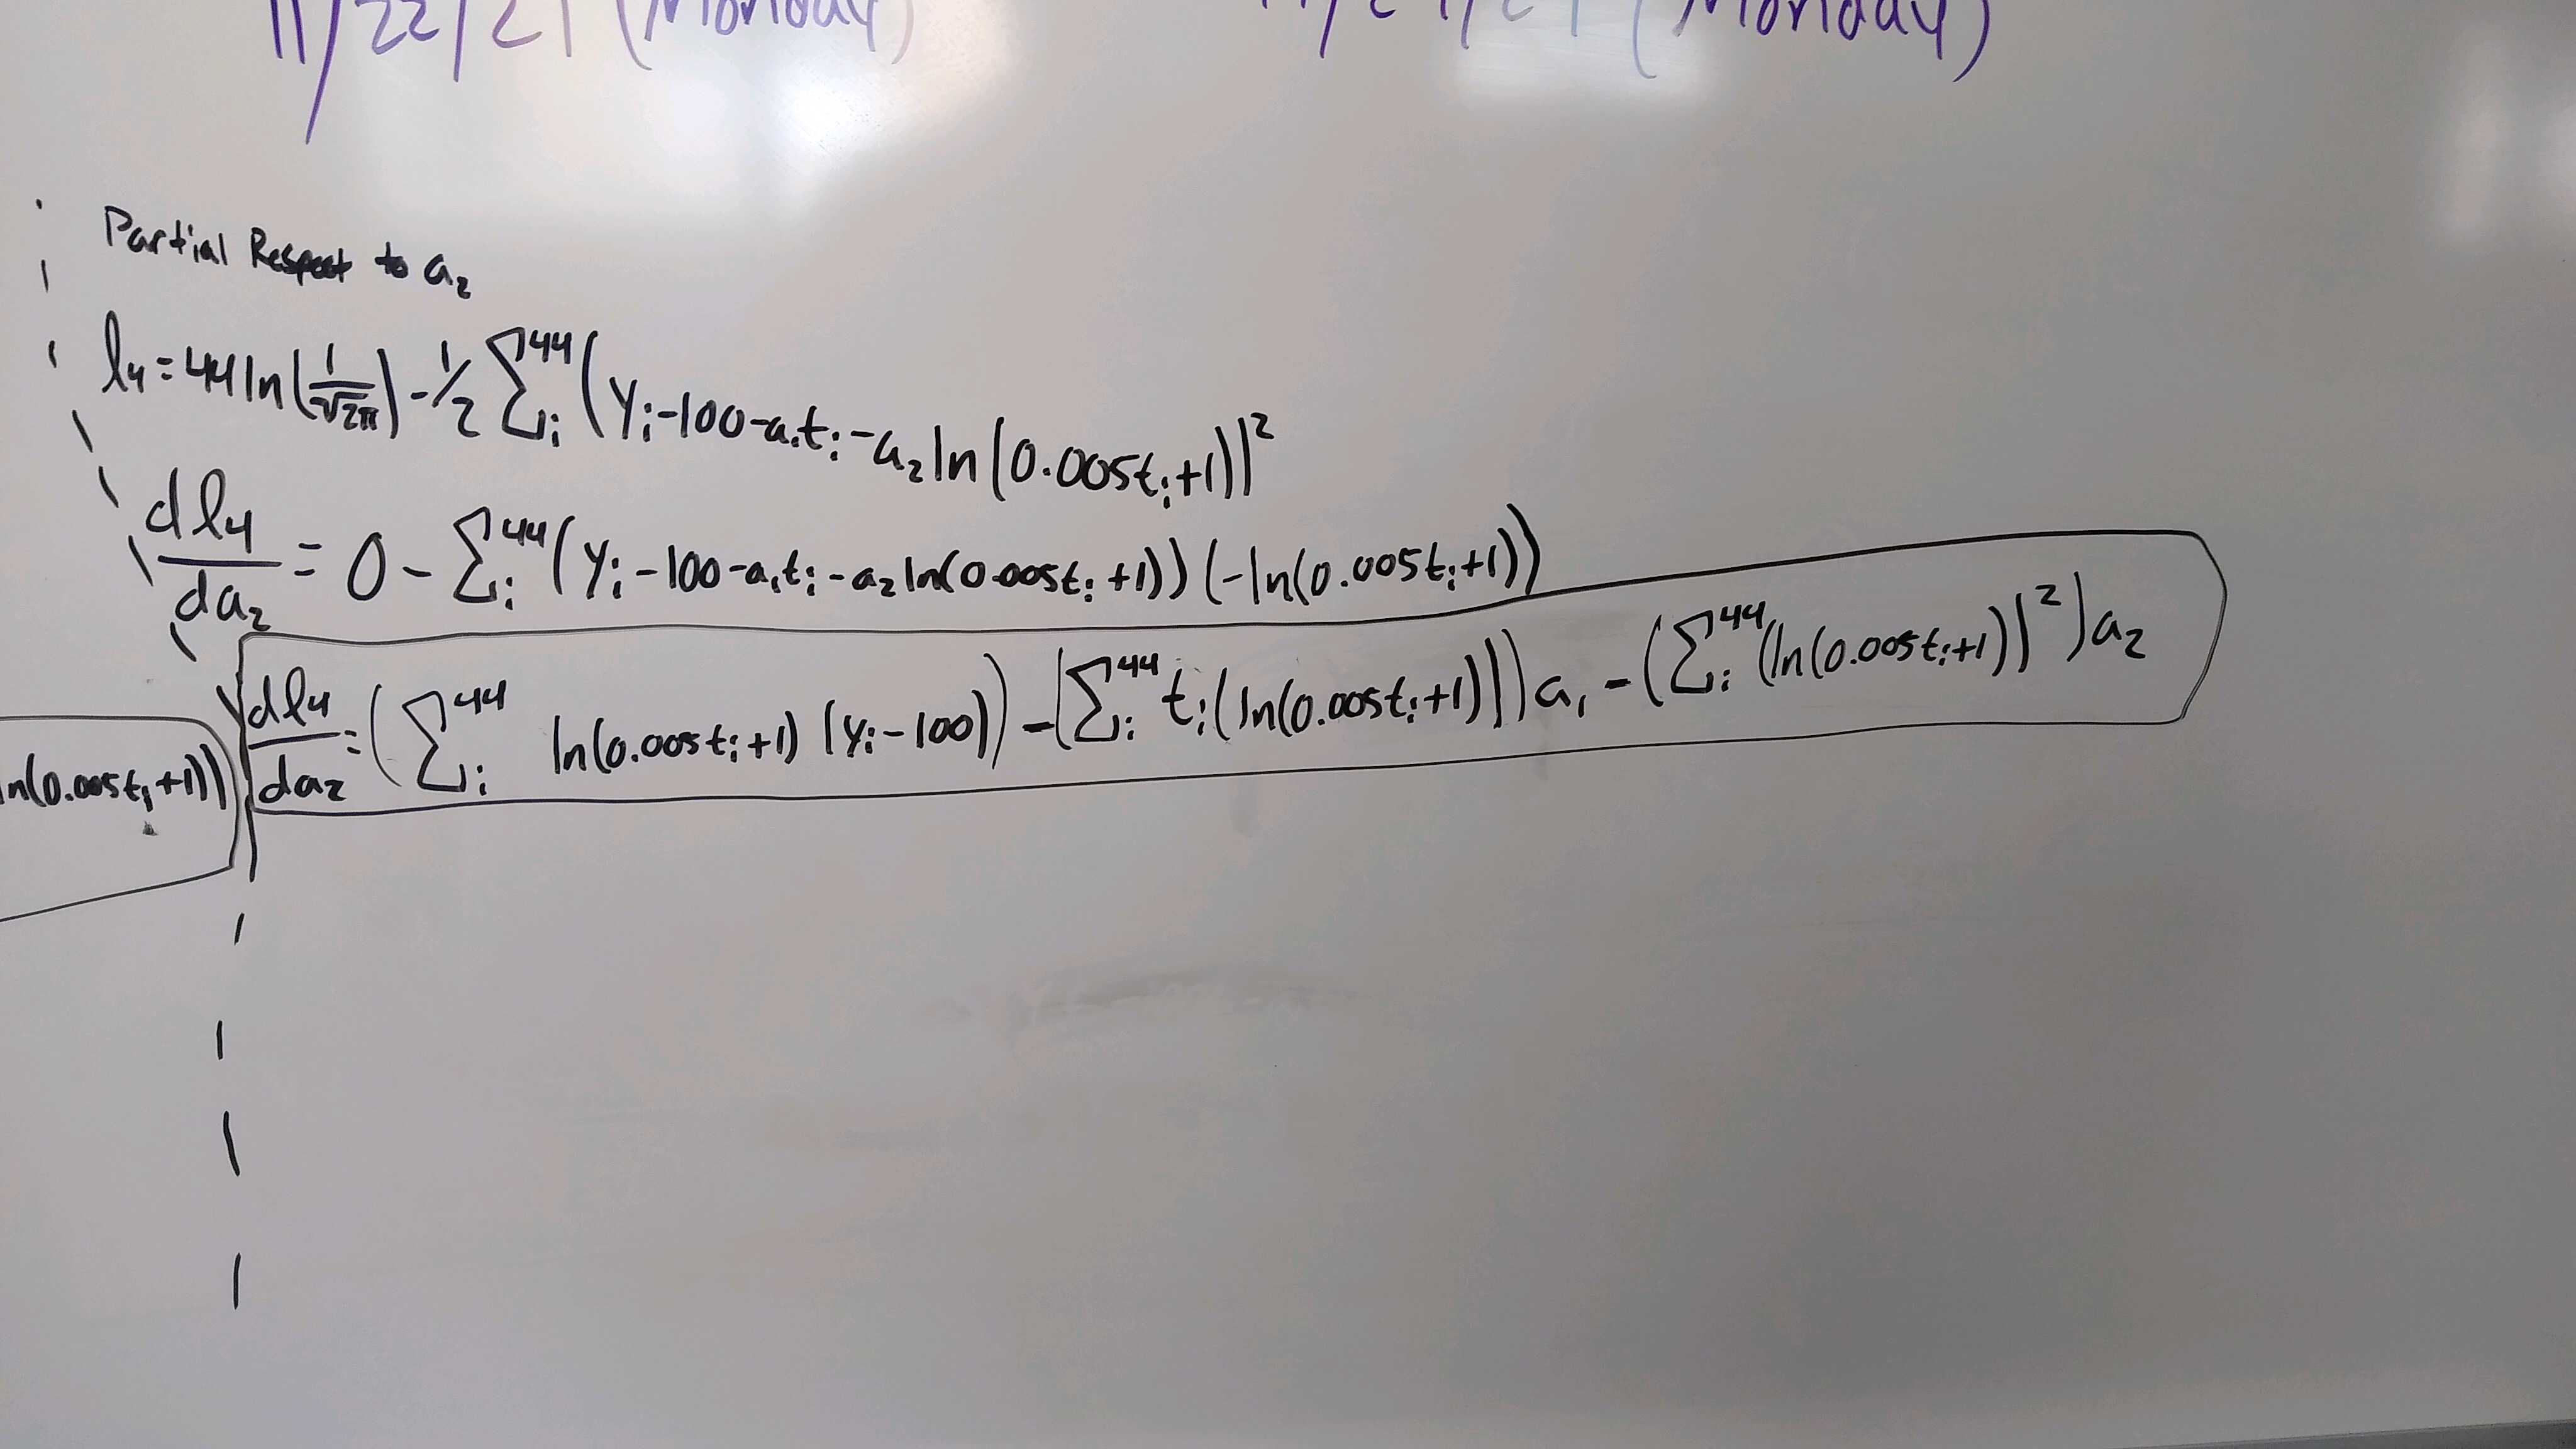 11/22/21 (Monday)
(Monday)
Partial Respect to a₂
l₄ = 44 ln(1/√2π) - 1/2 Σᵢ⁴⁴ (yᵢ - 100 - a₁tᵢ - a₂ ln(0.005tᵢ+1))²
dl₄/da₂ = 0 - Σᵢ⁴⁴ (yᵢ - 100 - a₁tᵢ - a₂ ln(0.005tᵢ+1)) (-ln(0.005tᵢ+1))
dl₄/da₂ = (Σᵢ⁴⁴ ln(0.005tᵢ+1) (yᵢ-100)) - (Σᵢ⁴⁴ tᵢ(ln(0.005tᵢ+1))) a₁ - (Σᵢ⁴⁴ (ln(0.005tᵢ+1))²) a₂
ln(0.005tᵢ+1))